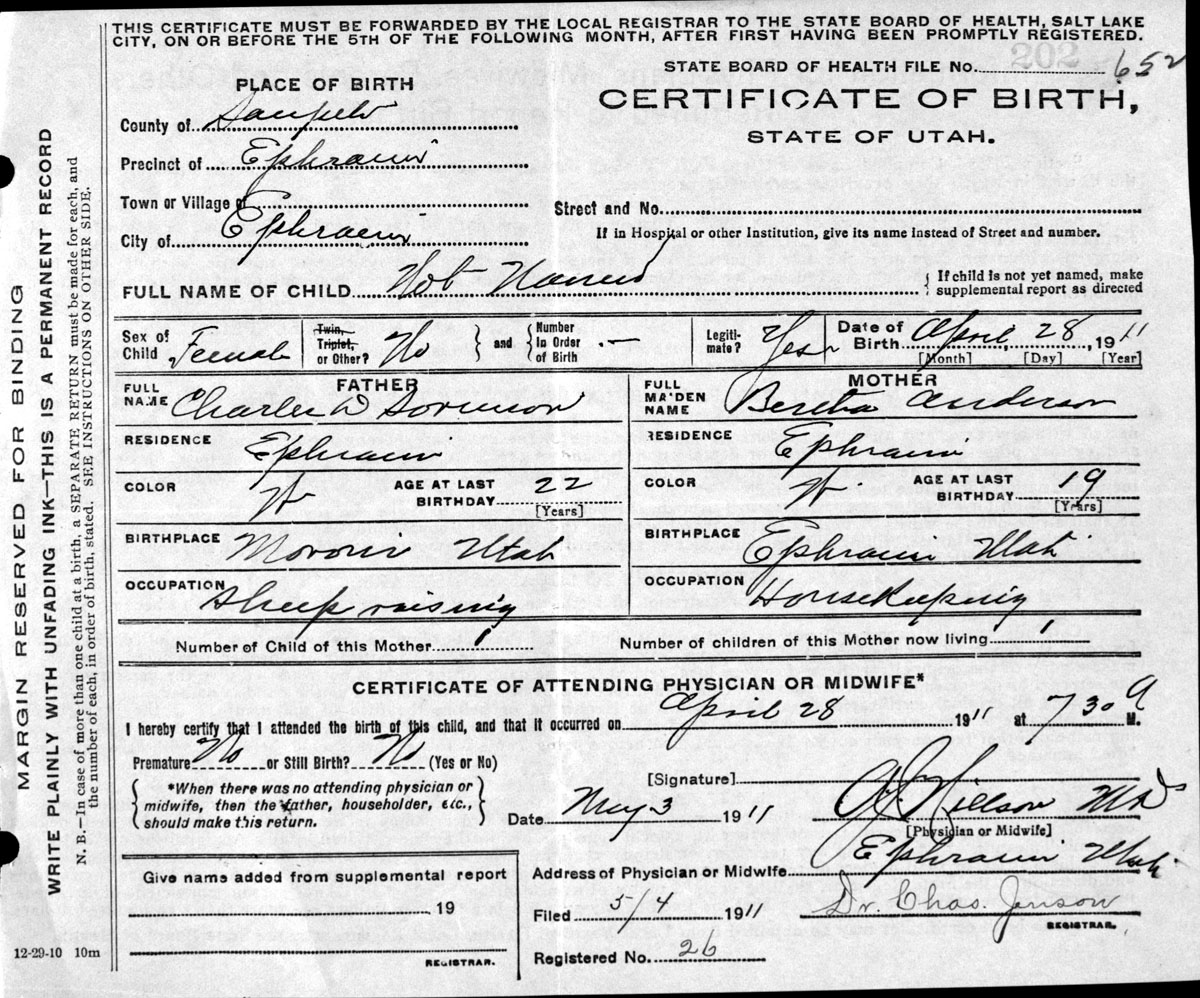 THIS CERTIFICATE MUST BE FORWARDED BY THE LOCAL REGISTRAR TO THE STATE BOARD OF HEALTH, SALT LAKE
CITY, ON OR BEFORE THE 5TH OF THE FOLLOWING MONTH, AFTER FIRST HAVING BEEN PROMPTLY REGISTERED.
202
STATE BOARD OF HEALTH FILE No. 652
PLACE OF BIRTH
CERTIFICATE OF BIRTH,
STATE OF UTAH.
County of Sanpete
Precinct of Ephraim
Town or Village of
Street and No.
City of Ephraim
If in Hospital or other Institution, give its name instead of Street and number.
FULL NAME OF CHILD Not Named { If child is not yet named, make supplemental report as directed
Sex of Child Female Twin, Triplet, or Other? No } and { Number In Order of Birth - Legitimate? Yes Date of Birth April 28, 1911
[Month] [Day] [Year]
FATHER
FULL NAME Charles D Sorenson
RESIDENCE Ephraim
COLOR W AGE AT LAST BIRTHDAY 22
[Years]
BIRTHPLACE Moroni Utah
OCCUPATION Sheep raising
MOTHER
FULL MAIDEN NAME Bertha Anderson
RESIDENCE Ephraim
COLOR W AGE AT LAST BIRTHDAY 19
[Years]
BIRTHPLACE Ephraim Utah
OCCUPATION Housekeeping
Number of Child of this Mother 1 Number of children of this Mother now living 1
CERTIFICATE OF ATTENDING PHYSICIAN OR MIDWIFE*
I hereby certify that I attended the birth of this child, and that it occurred on April 28 1911 at 730 a M.
Premature No or Still Birth? No (Yes or No)
{ *When there was no attending physician or
midwife, then the father, householder, etc.,
should make this return. }
[Signature]
Date May 3 1911 Nillson MD
[Physician or Midwife]
Address of Physician or Midwife Ephraim Utah
Filed 5/4 1911 Dr. Chas. Jenson
REGISTRAR.
Registered No. 26
Give name added from supplemental report
19
REGISTRAR.
12-29-10 10m
MARGIN RESERVED FOR BINDING
WRITE PLAINLY WITH UNFADING INK—THIS IS A PERMANENT RECORD
N. B.—In case of more than one child at a birth, a SEPARATE RETURN must be made for each, and
the number of each, in order of birth, stated. SEE INSTRUCTIONS ON OTHER SIDE.